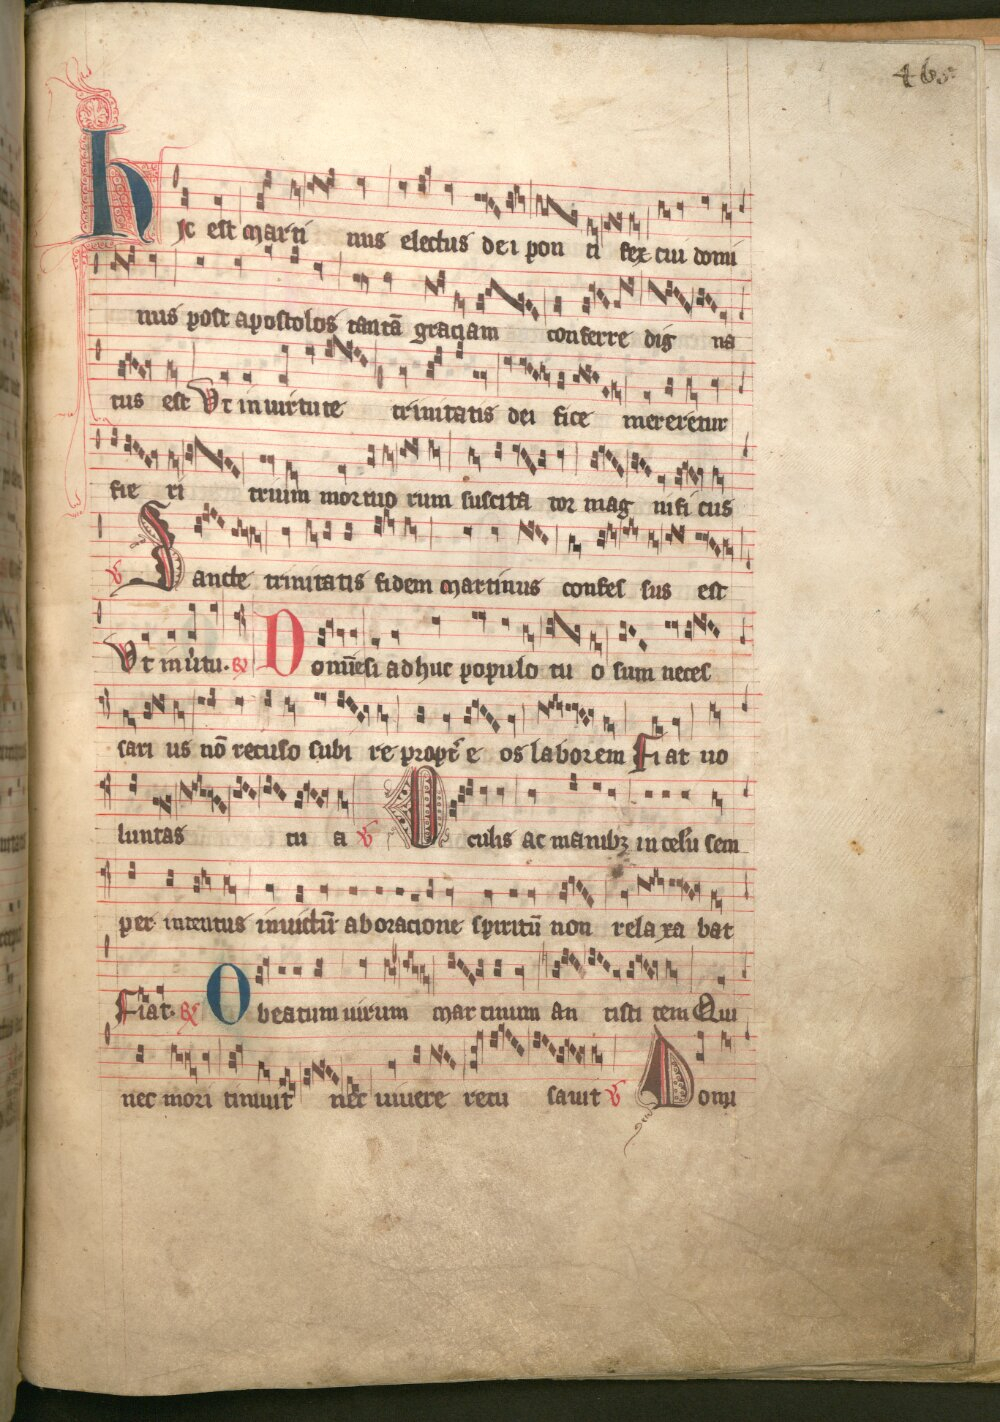 463
hic est marti nus electus dei pon ti fex cui domi
nus post apostolos tantā graciam conferre dig na
tus est Ut in virtute trinitatis dei fice mereretur
fie ri trium mortuo rum suscita tor mag nifi cus
℣ Sancte trinitatis fidem martinus confes sus est
Ut in v̓tu. ℟ Domīe si adhuc populo tu o sum neces
sari us nō recuso subi re propt̓ e os laborem Fiat uo
luntas tu a ℣ Oculis ac manibꝫ in celū sem
per intentus inuictū ab oracione spiritū non relaxa bat
Fiat. ℟ O beatum uirum martinum an tisti tem Qui
nec mori timuit nec uiuere recu sauit ℣ Domi